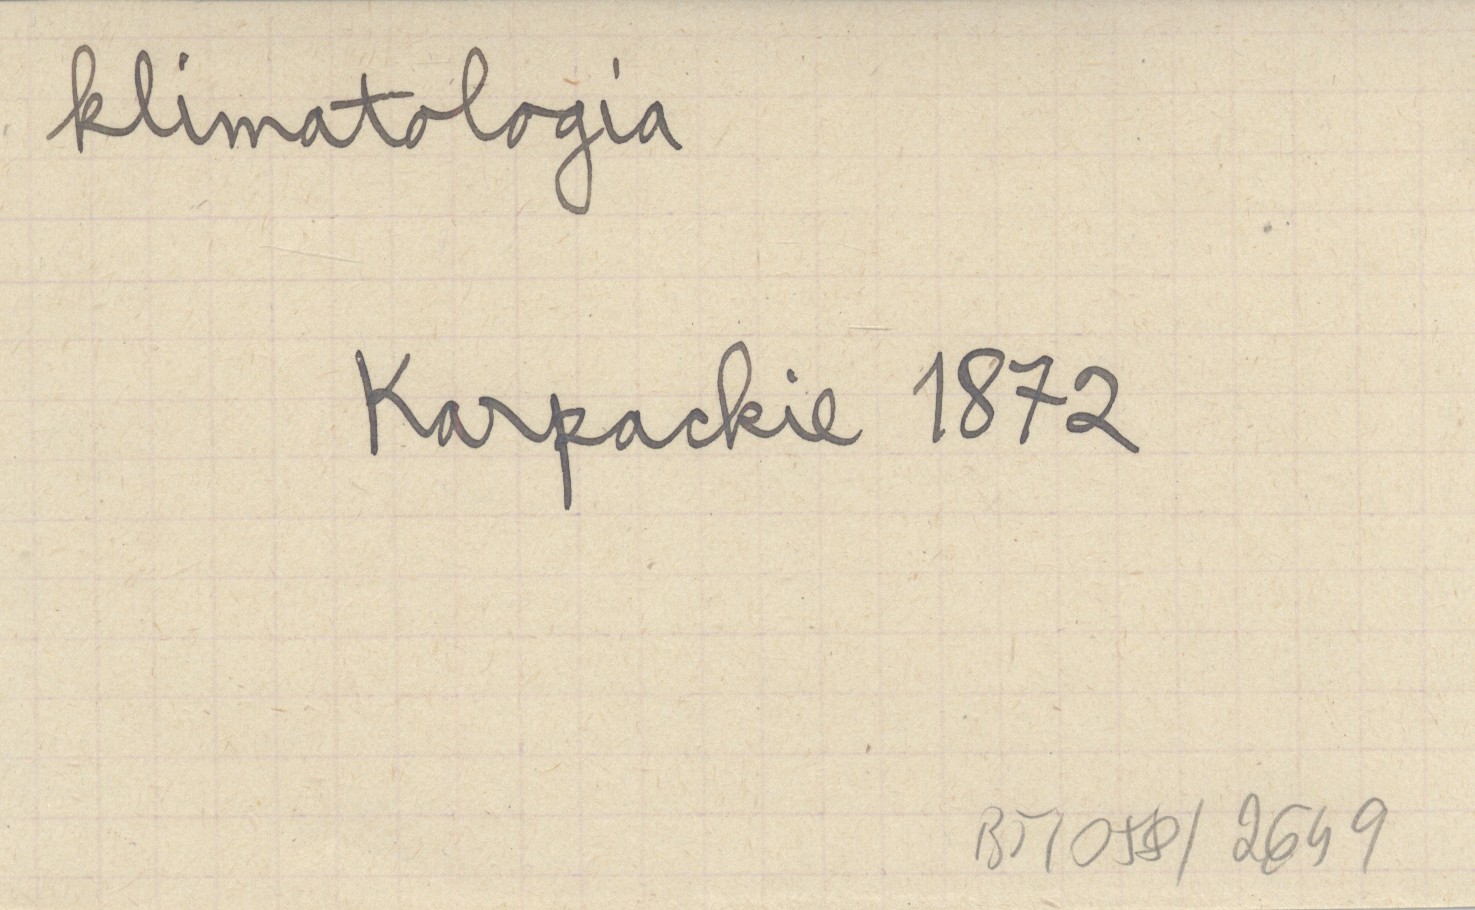 klimatologia
Karpackie 1872
BT/058/2649